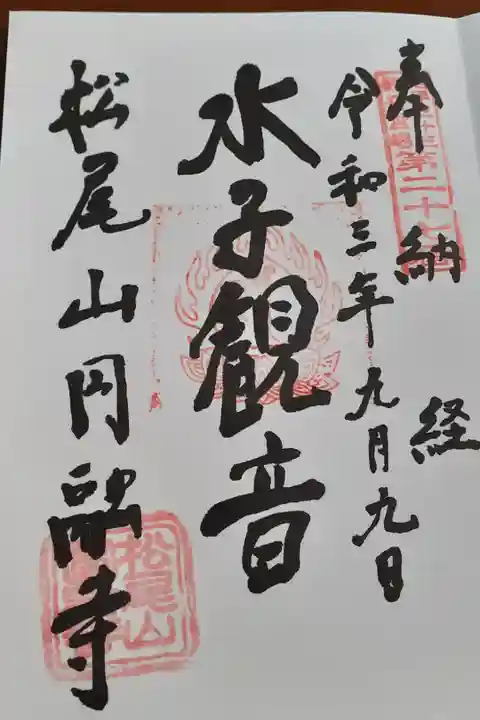 奉納経
令和三年九月九日
水子観音
松尾山円融寺
松尾山